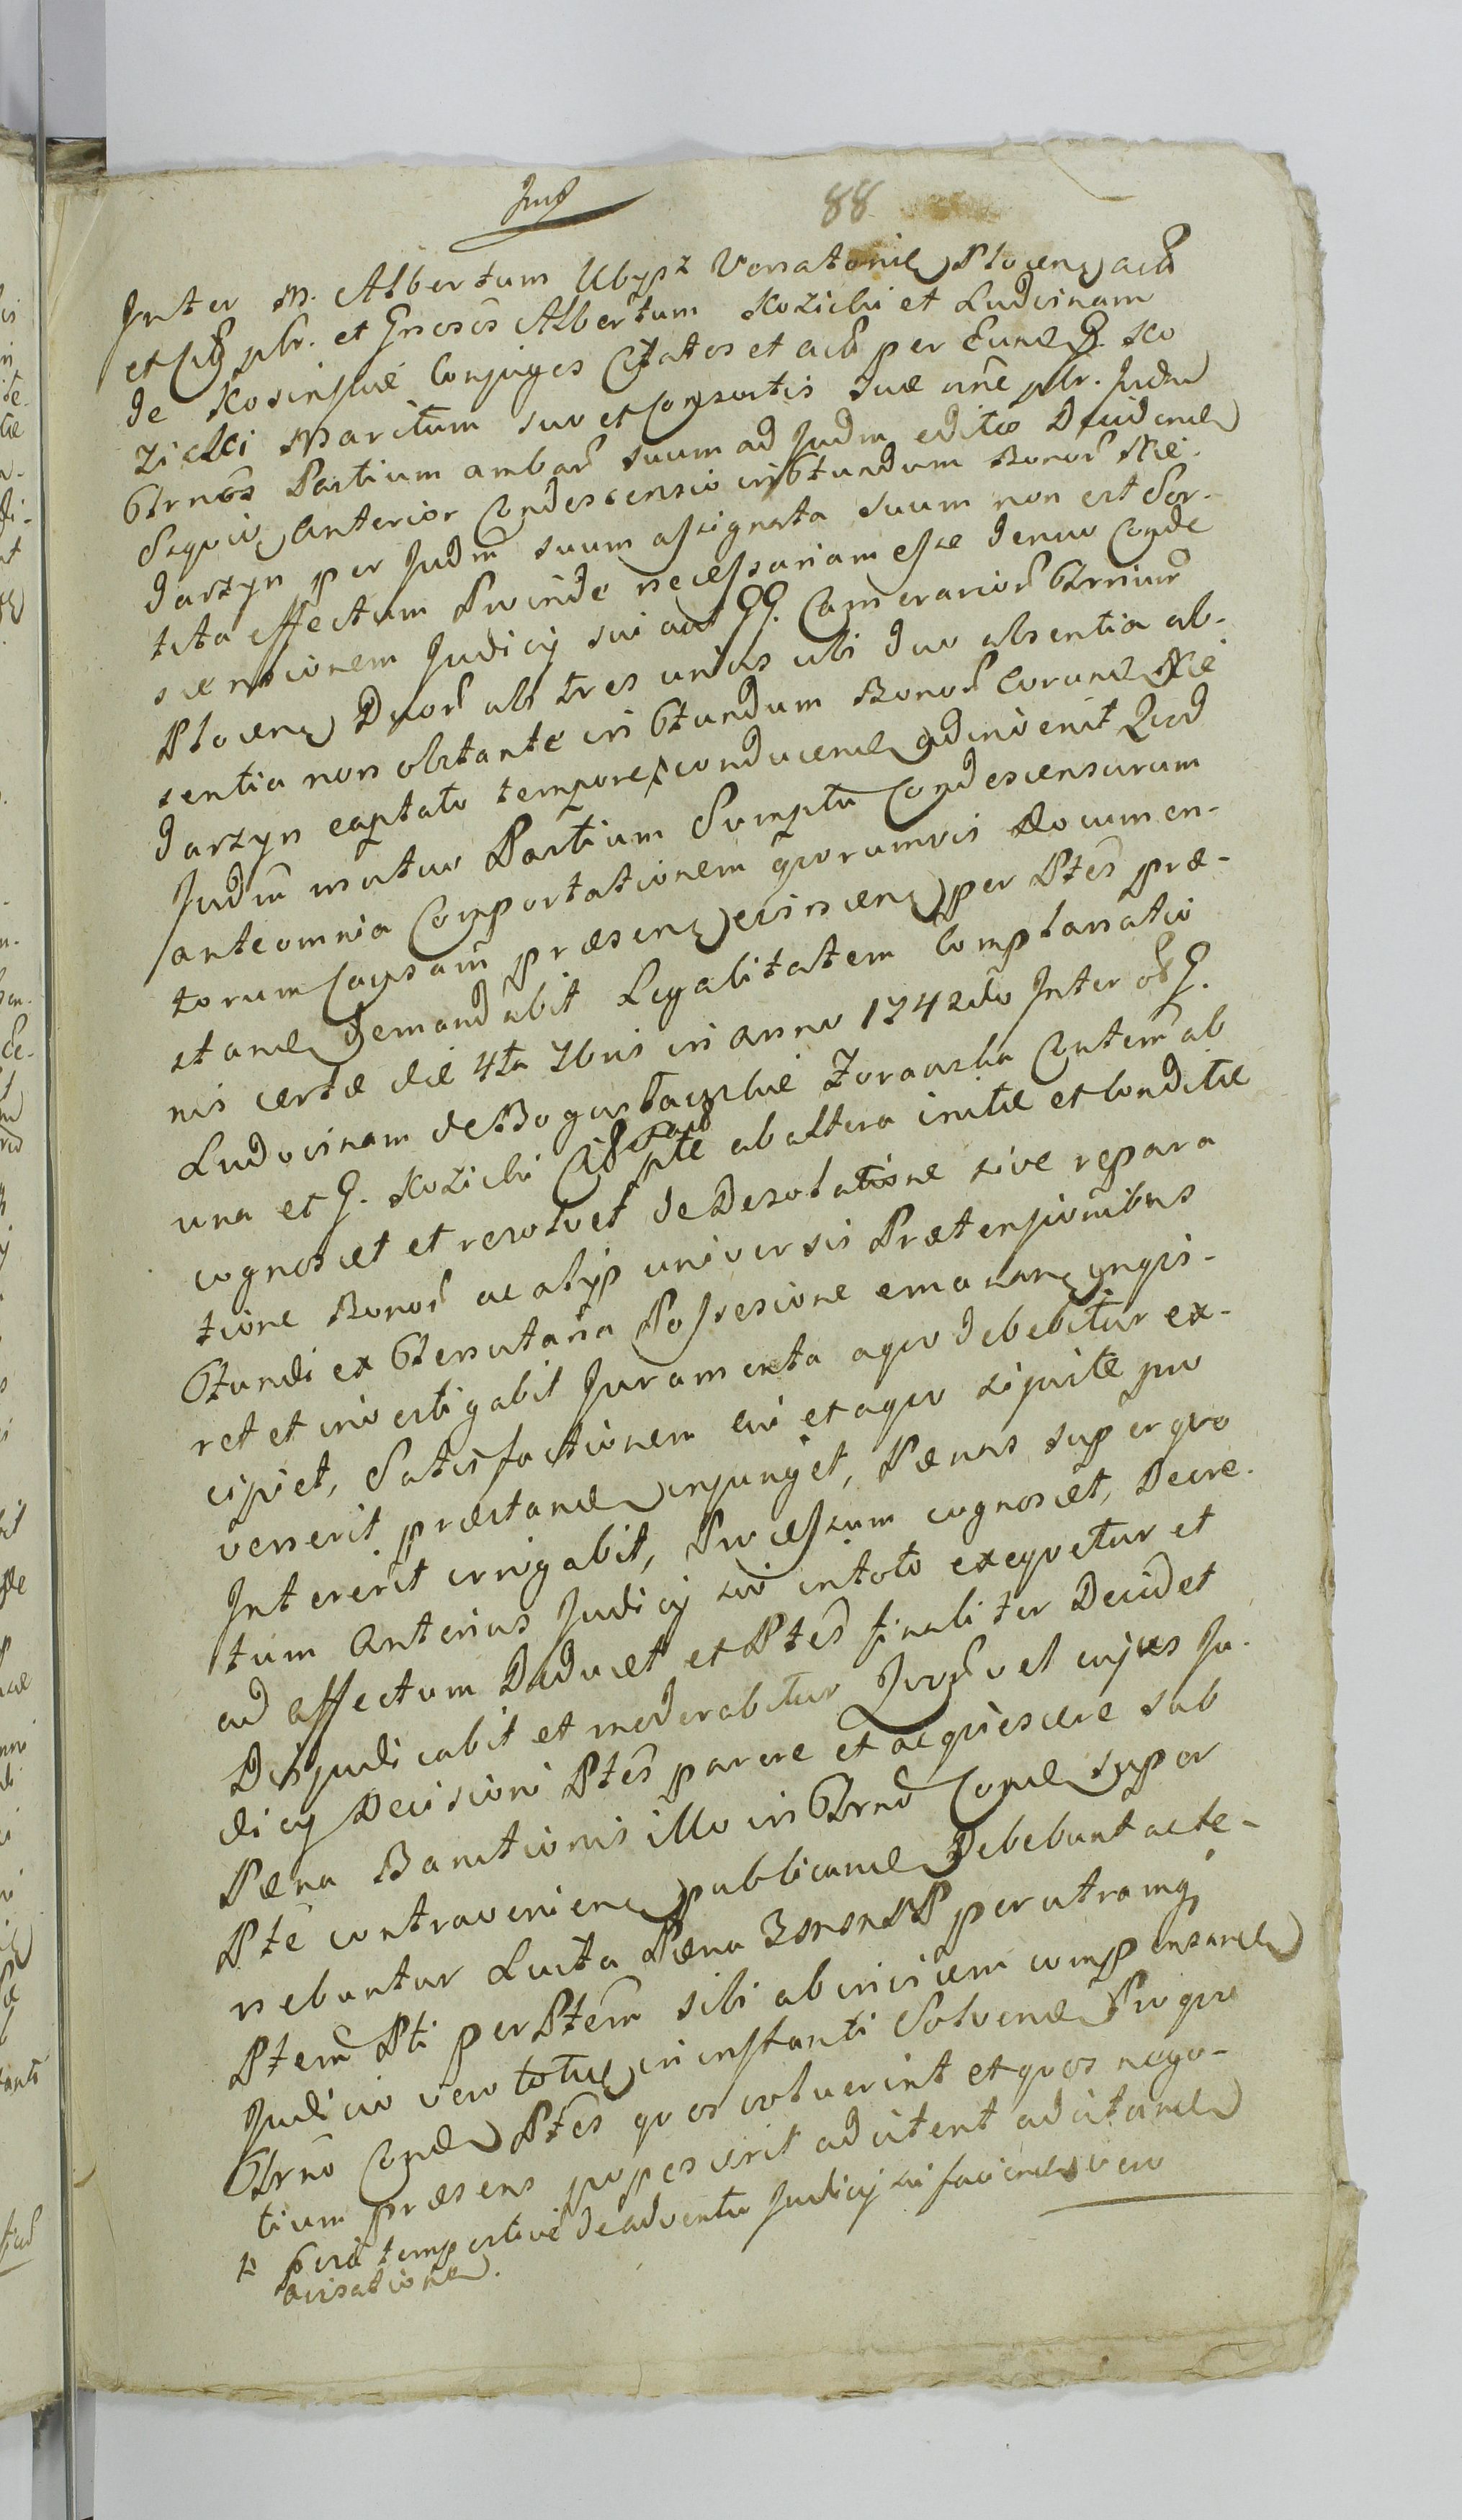 88
Inter M. Albertum Ubysz Venatorie Plocen actt
et Citt ptr. et Gnosos Albertum Kozicki et Ludvinam
de Kosinskie Conjuges Citatos et actt per Eund G. Ko
zicki Maritum suo et Consortis suæ nne ptr. Judm
Gtrnos Partium ambar suum ad Judm editio Decidend
Exquo anterior Condescensio in Gtundum Bonor Nie-
darzyn per Judm suum assignata suum non est Sor-
tita effectum Proinde necessariam esse denuo Conde
scensionem Judicij sui aut GG. Camerarior Gtrnium
Plocen Duor ab tres unius ubi duo absentia ab-
sentia non obstante in Gtundum Bonor Corund Nie
darzyn captato tempore x conducend adinvenit Quod
Judm mutuo Partium Sumptu Condescensurum
ante omnia Comportationem quorumvis Documen-
torum Causam præsen evincen per Ptes præ-
stand demandabit Legalitatem Complanatio
nis certæ die 4ta 7bris in anno 1742do Inter ob G.
Ludovinam de Bogustawskie Zorawska Contem ab
una et G. Kozicki Citt pte ab altera initæ et Conditæ
cognoscet et resolvet de Desolatione sive repara
tione Bonor ac alijs universis Prætensionibus
Gtundi ex Gtenutaria Possesione emanan inqui-
ret et investigabit Juramenta a quo debebitur ex-
cipiet, Satisfactionem cui et a quo si juste pro
venerit præstand injunget, Pænas super quo
Intererit irrogabit, Processum cognoscet, Decre-
tum Anterius Judicij sui in toto exequetur et
ad effectum Deducet et Ptes finaliter Decidet
Disjudicabit et moderabitur Quor vel cujus Ju-
dicij Decisioni Ptes parere et acquiescere sub
Pæna Bannitionis illo in Gtrno Cond super
Pte contravenien publicand Debebunt ac te-
nebuntur Luita Pæna 3 MMPP per utramq
Ptem Pti per Ptem sibi ab invicem compensand
Judicio vero totius in instanti Solvend Pro quo
Gtrno Cond Ptes quos voluerint et quos nego-
tium præsens poposcerit adcitent adcitand
x tempestive de adventu Judicij sui faciend vero
avisatione.